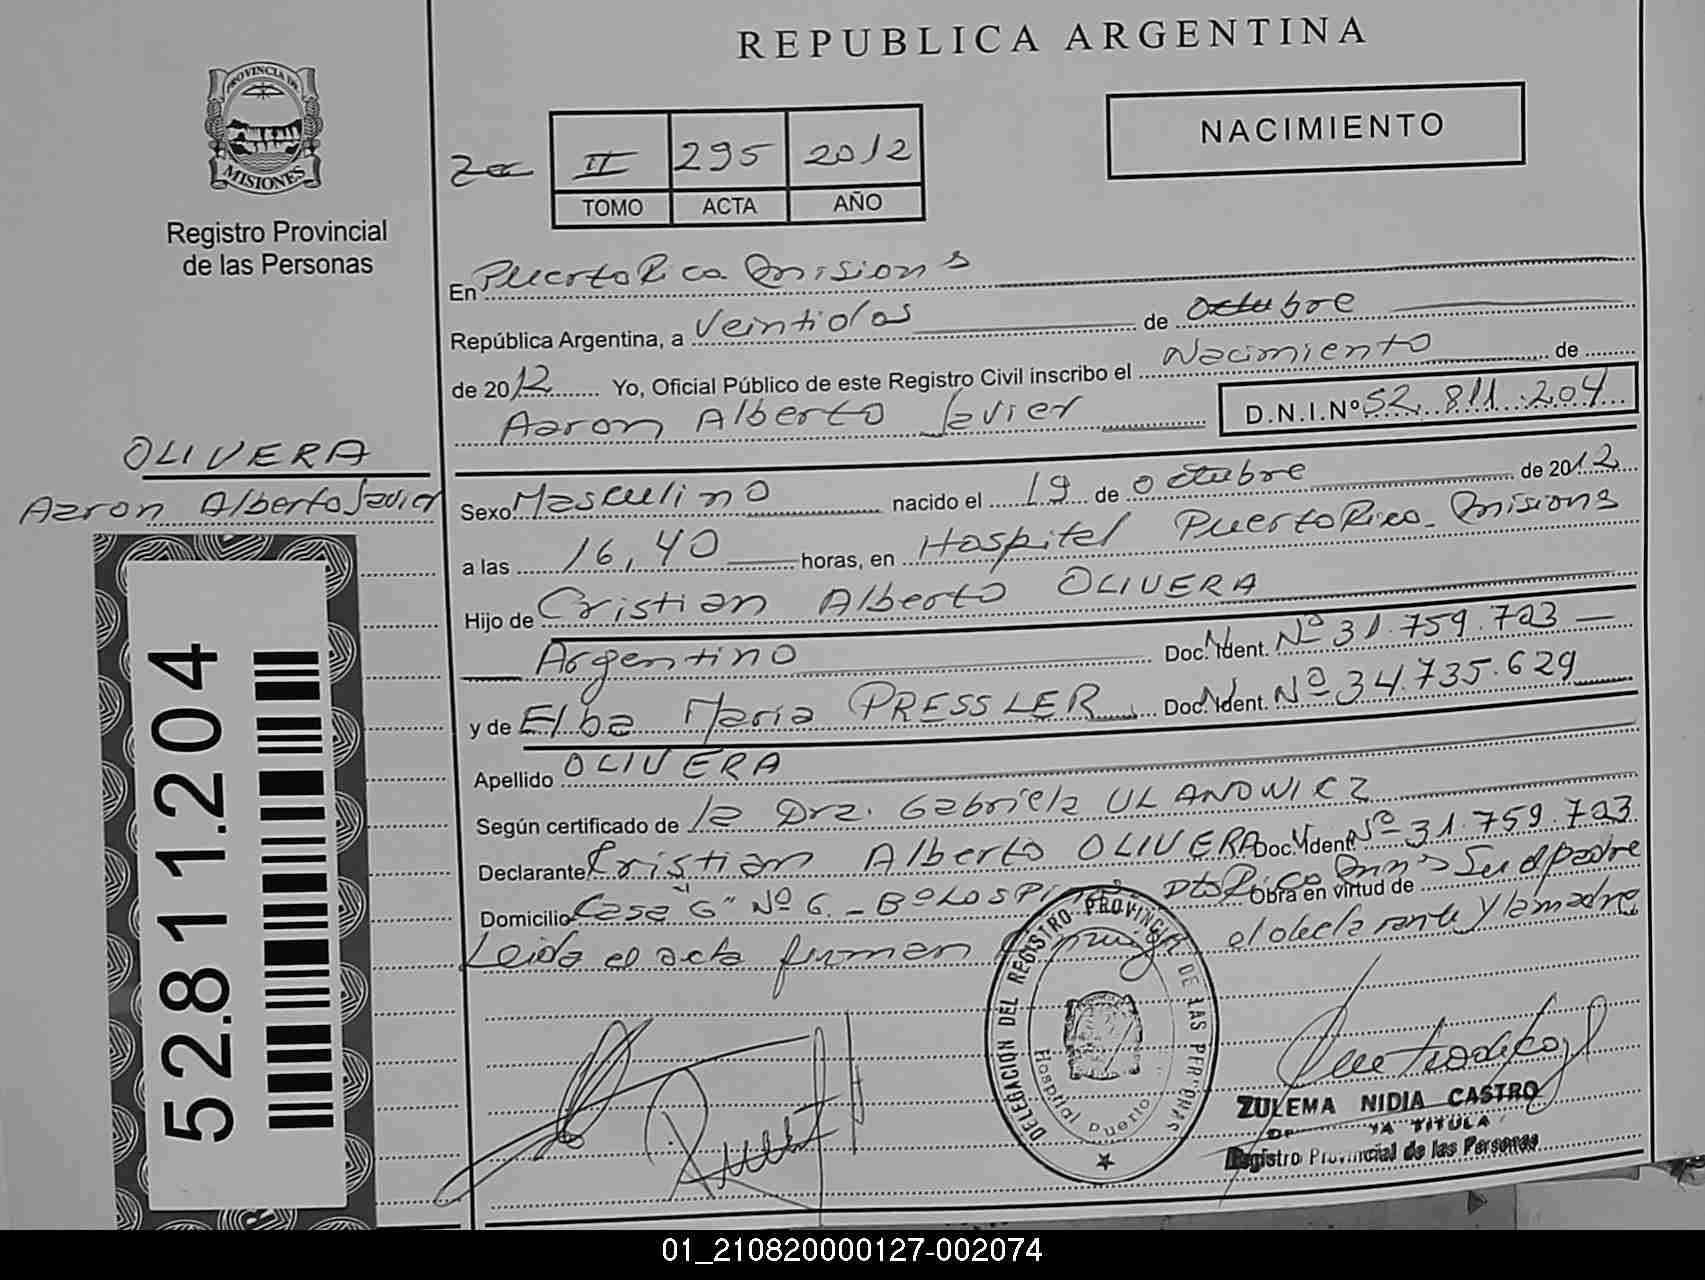 REPUBLICA ARGENTINA
PROVINCIA DE
MISIONES
Registro Provincial
de las Personas
NACIMIENTO
II 295 2012
TOMO ACTA AÑO
En Puerto Rico Misiones
República Argentina, a Veintidos de Octubre
de 2012 Yo, Oficial Público de este Registro Civil inscribo el Nacimiento de
Aaron Alberto Javier D.N.I.Nº 52.811.204
OLIVERA
Aaron Alberto Javier
52.811.204
Sexo Masculino nacido el 19 de octubre de 2012
a las 16,40 horas, en Hospital Puerto Rico - Misiones
Hijo de Cristian Alberto OLIVERA
Argentino Doc. Ident. Nº 31.759.723
y de Elba Maria PRESSLER Doc. Ident. Nº 34.735.629
Apellido OLIVERA
Según certificado de la Dra. Gabriela ULANOWICZ
Declarante Cristian Alberto OLIVERA Doc. Ident. Nº 31.759.723
Domicilio Casa "G" Nº 6 - Bº LOS Pto Rico Mnes Obra en virtud de Ser el padre
Leida el acta firman el declarante y la madre
DELEGACIÓN DEL REGISTRO PROVINCIAL DE LAS PERSONAS
Hospital Puerto
ZULEMA NIDIA CASTRO
Registro Provincial de las Personas
01_210820000127-002074